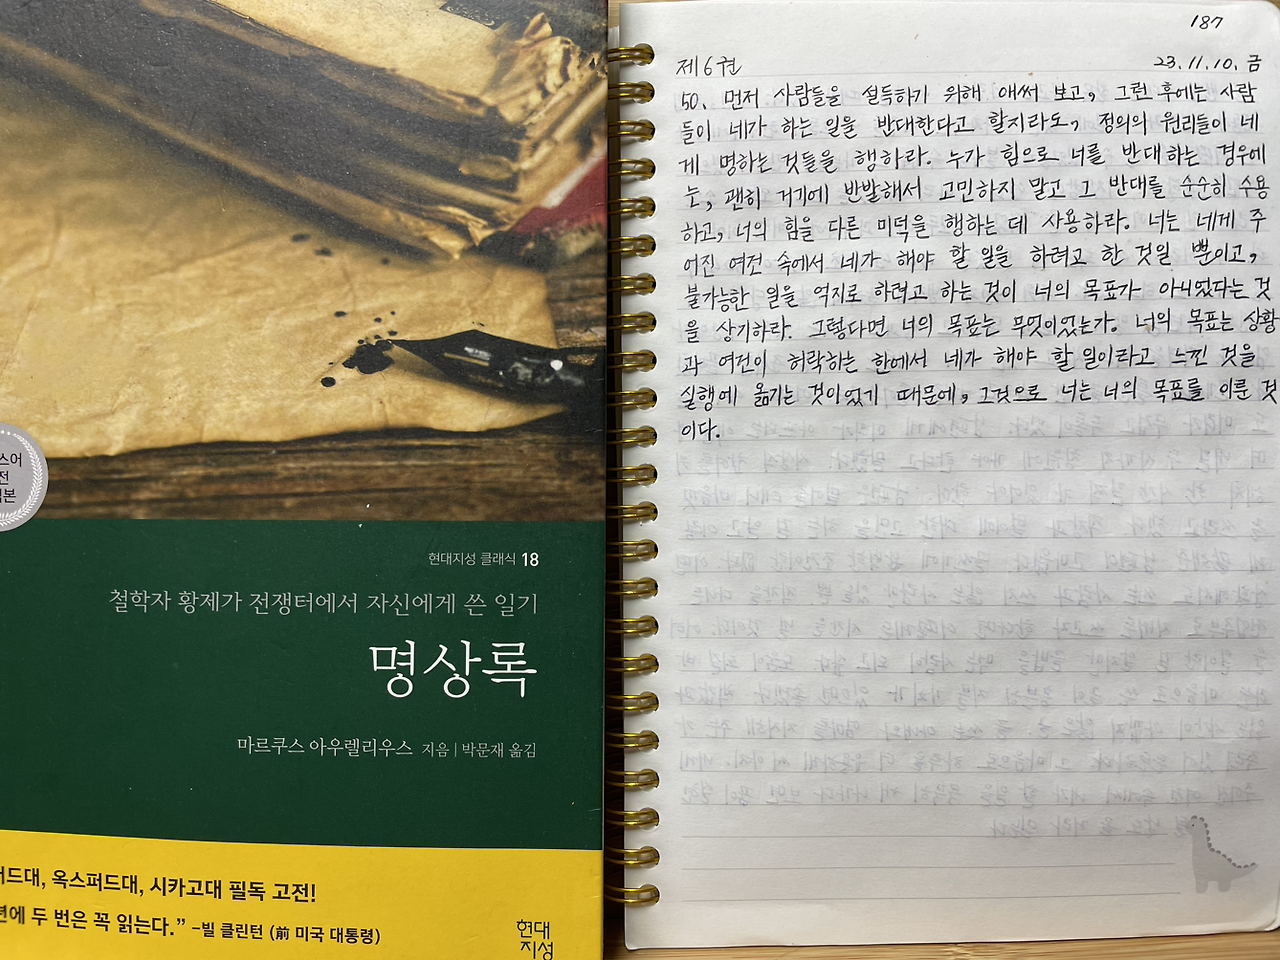 스어
전
본
현대지성 클래식 18
철학자 황제가 전쟁터에서 자신에게 쓴 일기
명상록
마르쿠스 아우렐리우스 지음 | 박문재 옮김
드대, 옥스퍼드대, 시카고대 필독 고전!
에 두 번은 꼭 읽는다.” -빌 클린턴 (前 미국 대통령)
현대
지성
187
제6권 23.11.10. 금
50. 먼저 사람들을 설득하기 위해 애써 보고, 그런 후에는 사람
들이 네가 하는 일을 반대한다고 할지라도, 정의의 원리들이 네
게 명하는 것들을 행하라. 누가 힘으로 너를 반대하는 경우에
는, 괜히 거기에 반발해서 고민하지 말고 그 반대를 순순히 수용
하고, 너의 힘을 다른 미덕을 행하는 데 사용하라. 너는 네게 주
어진 여건 속에서 네가 해야 할 일을 하려고 한 것일 뿐이고,
불가능한 일을 억지로 하려고 하는 것이 너의 목표가 아니었다는 것
을 상기하라. 그렇다면 너의 목표는 무엇이었는가. 너의 목표는 상황
과 여건이 허락하는 한에서 네가 해야 할 일이라고 느낀 것을
실행에 옮기는 것이었기 때문에, 그것으로 너는 너의 목표를 이룬 것
이다.